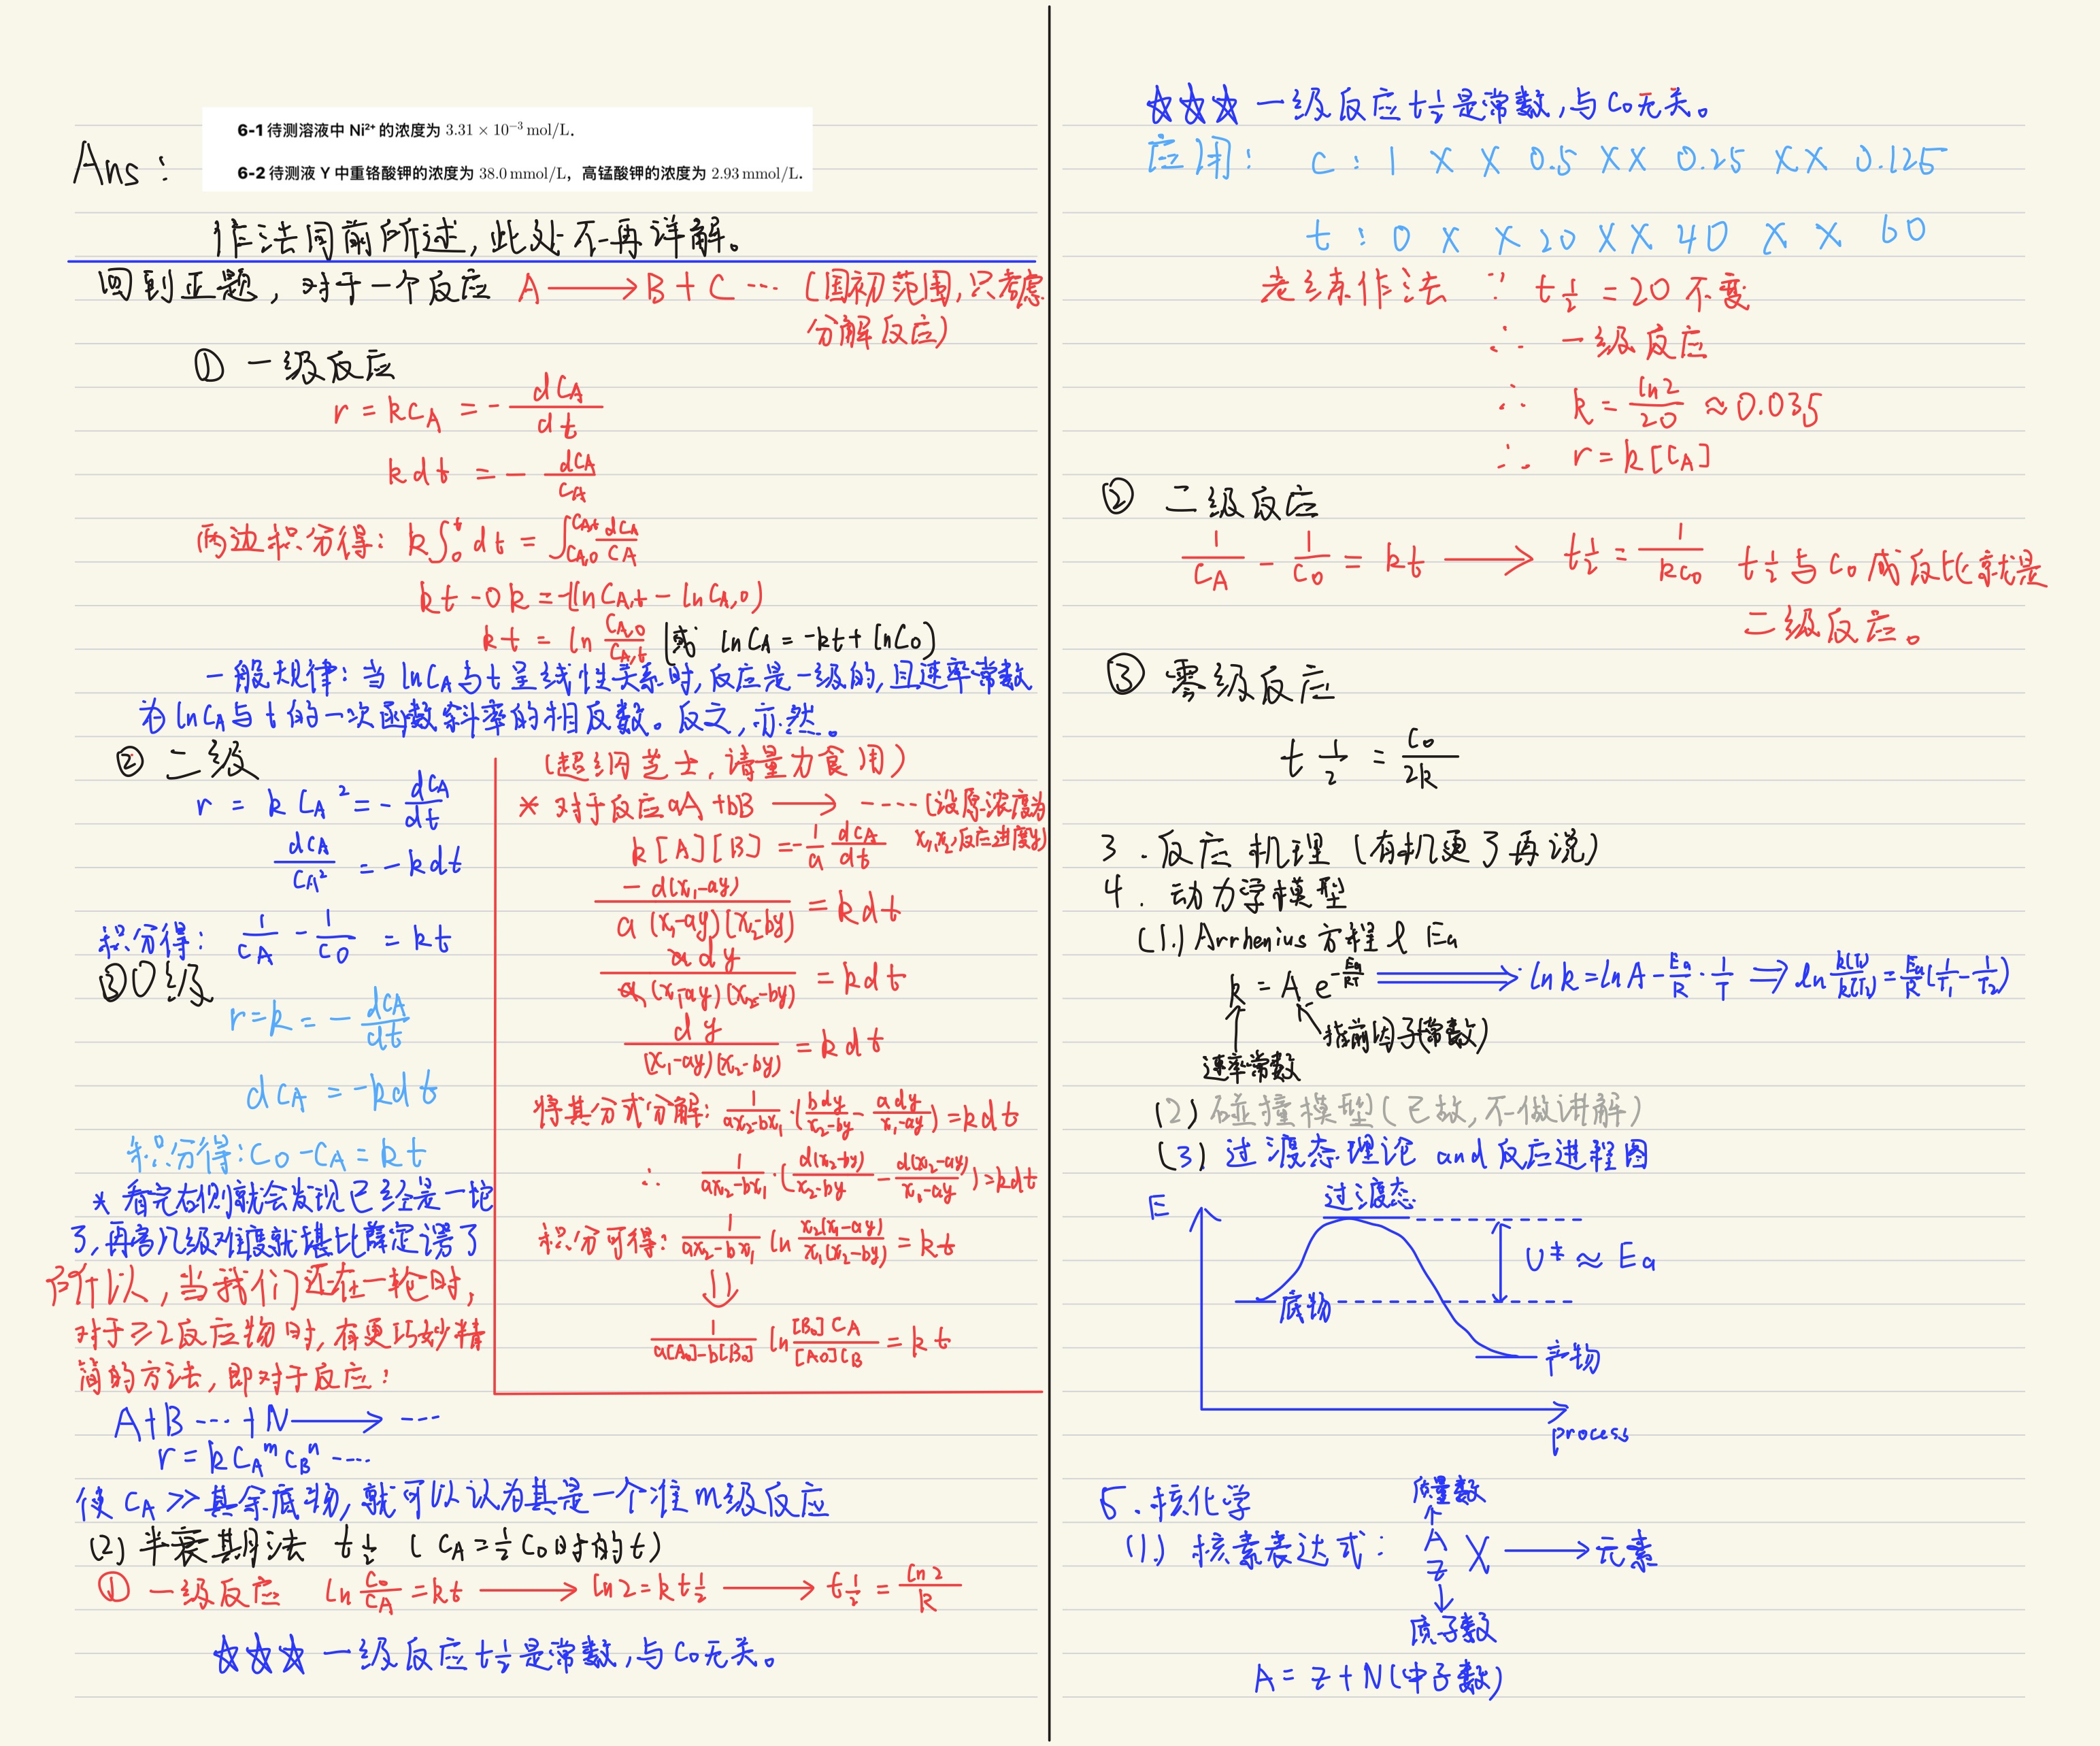 6-1 待测溶液中 Ni²⁺ 的浓度为 3.31 × 10⁻³ mol/L.
Ans：
6-2 待测液 Y 中重铬酸钾的浓度为 38.0 mmol/L，高锰酸钾的浓度为 2.93 mmol/L.
作法同前所述，此处不再详解。
回到正题，对于一个反应 A ⟶ B + C … (国初范围，只考虑
分解反应)
① 一级反应
r = kC_A = - dC_A/dt
kdt = - dC_A/C_A
两边积分得：k∫₀ᵗ dt = ∫_{C_A,0}^{C_A,t} dC_A/C_A
kt - 0k = -(lnC_A,t - lnC_A,0)
kt = ln C_A,0/C_A,t (或 lnC_A = -kt + lnC₀)
一般规律：当 lnC_A 与 t 呈线性关系时，反应是一级的，且速率常数
为 lnC_A 与 t 的一次函数斜率的相反数。反之，亦然。
② 二级
r = kC_A² = - dC_A/dt
dC_A/C_A² = -kdt
积分得：1/C_A - 1/C₀ = kt
③ 0级
r = k = - dC_A/dt
dC_A = -kdt
积分得：C₀ - C_A = kt
* 看完右侧就会发现已经是一坨
了，再高几级难度就堪比薛定谔了
所以，当我们还在一轮时，
对于≥2反应物时，有更巧妙精
简的方法，即对于反应：
A + B … + N ⟶ …
r = kC_A^m C_B^n …
(超纲芝士，请量力食用)
* 对于反应 aA + bB ⟶ …… (设原浓度为
x₁, x₂, 反应进度y)
k[A][B] = -1/a dC_A/dt
-d(x₁-ay)/a(x₁-ay)(x₂-by) = kdt
ady/a(x₁-ay)(x₂-by) = kdt
dy/(x₁-ay)(x₂-by) = kdt
将其分式分解：1/(ax₂-bx₁)·(bdy/(x₂-by) - ady/(x₁-ay)) = kdt
∴ 1/(ax₂-bx₁)·(d(x₂-by)/(x₂-by) - d(x₂-ay)/(x₁-ay)) = kdt
积分可得：1/(ax₂-bx₁) ln x₂(x₁-ay)/x₁(x₂-by) = kt
⇓
1/(a[A₀]-b[B₀]) ln [B₀]C_A/[A₀]C_B = kt
使 C_A ≫ 其余底物，就可以认为其是一个准m级反应
(2) 半衰期法 t½ ( C_A = ½C₀ 时的t)
① 一级反应 ln C₀/C_A = kt ⟶ ln2 = kt½ ⟶ t½ = ln2/k
☆☆☆ 一级反应 t½ 是常数，与C₀无关。
☆☆☆ 一级反应 t½ 是常数，与C₀无关。
应用： c : 1 X X 0.5 XX 0.25 XX 0.125
t : 0 X X 20 XX 40 X X 60
老练作法 ∵ t½ = 20 不变
∴ 一级反应
∴ k = ln2/20 ≈ 0.035
∴ r = k[C_A]
② 二级反应
1/C_A - 1/C₀ = kt ⟶ t½ = 1/kC₀ t½与C₀成反比就是
二级反应。
③ 零级反应
t½ = C₀/2k
3. 反应机理 (有机更了再说)
4. 动力学模型
(1.) Arrhenius 方程 & Ea
k = A e^(-Ea/RT) ⟹ lnk = lnA - Ea/R · 1/T ⟹ ln k(T₂)/k(T₁) = Ea/R(1/T₁ - 1/T₂)
指前因子(常数)
速率常数
(2) 碰撞模型 (已故，不做讲解)
(3) 过渡态理论 and 反应进程图
E
过渡态
U‡ ≈ Ea
底物
产物
process
5. 核化学
质量数
↑
(1.) 核素表达式： A Z X ⟶ 元素
↓
质子数
A = Z + N (中子数)